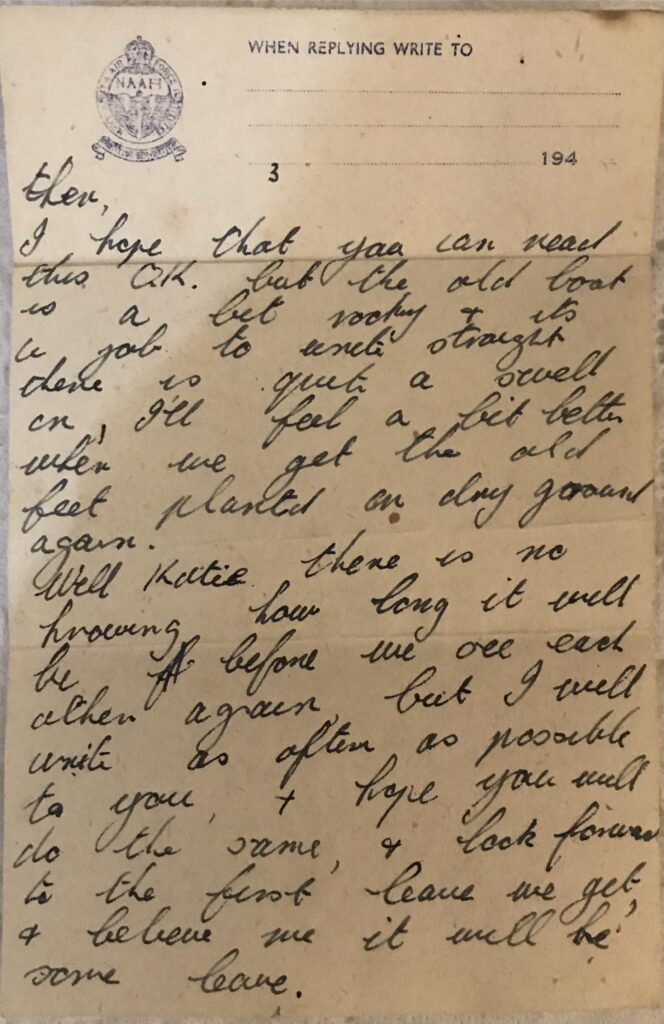 NAAFI
WHEN REPLYING WRITE TO
194
3
then,
I hope that you can read
this O.K. but the old boat
is a bit rocky & its
a job to write straight
there is quite a swell
on, I'll feel a bit better
when we get the old
feet plantd on dry ground
again.
Well Katie there is no
knowing how long it will
be before we see each
other again, but I will
write as often as possible
to you, & hope you will
do the same, & look forward
to the first leave we get,
& believe me it will be
some leave.